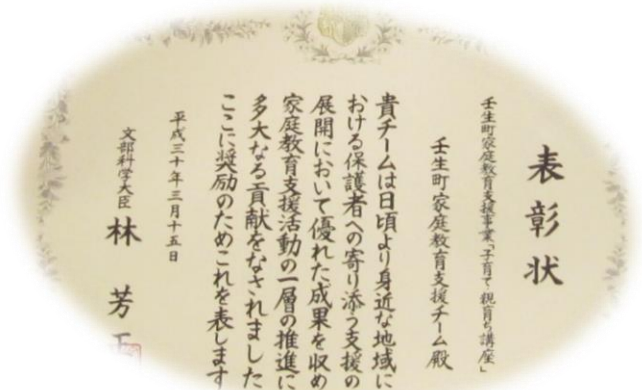 表彰状
壬生町家庭教育支援事業「子育て・親育ち講座」
壬生町家庭教育支援チーム殿
貴チームは日頃より身近な地域に
おける保護者への寄り添う支援の
展開において優れた成果を収め
家庭教育支援活動の一層の推進に
多大なる貢献をなされました
ここに奨励のためこれを表します
平成三十年三月十五日
文部科学大臣 林 芳正